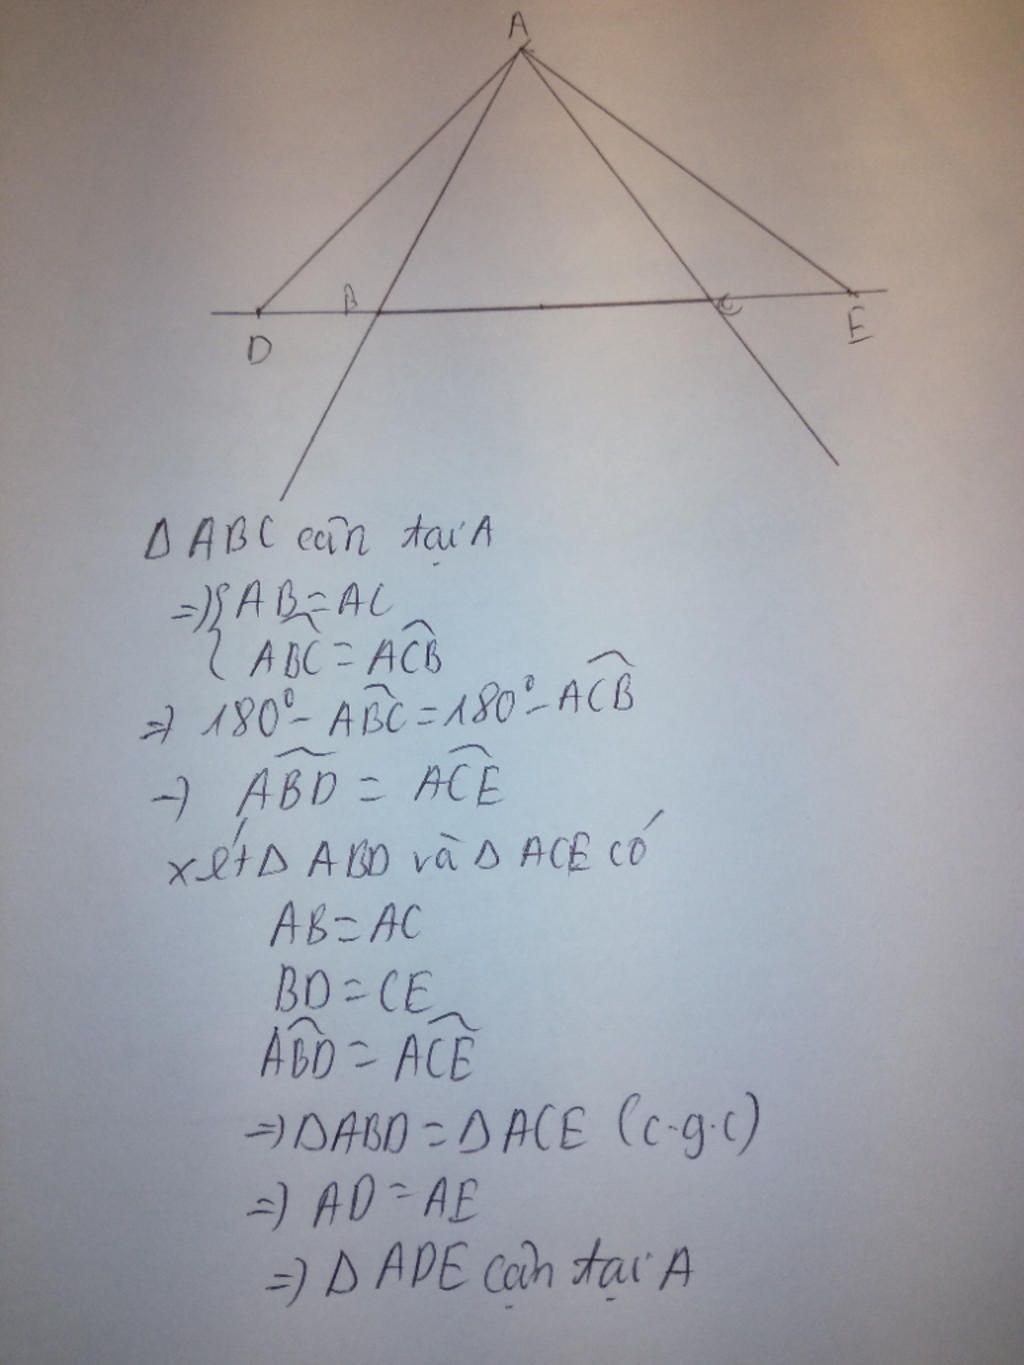 A
B
C
D
E
Δ ABC cân tại A
=> { AB = AC
{ ABC̑ = AĈB
=> 180° - AB̂C = 180° - AĈB
-> AB̂D = AĈE
xét Δ ABD và Δ ACE có
AB = AC
BD = CE
AB̂D = AĈE
=> Δ ABD = Δ ACE (c.g.c)
=> AD = AE
=> Δ ADE cận tại A